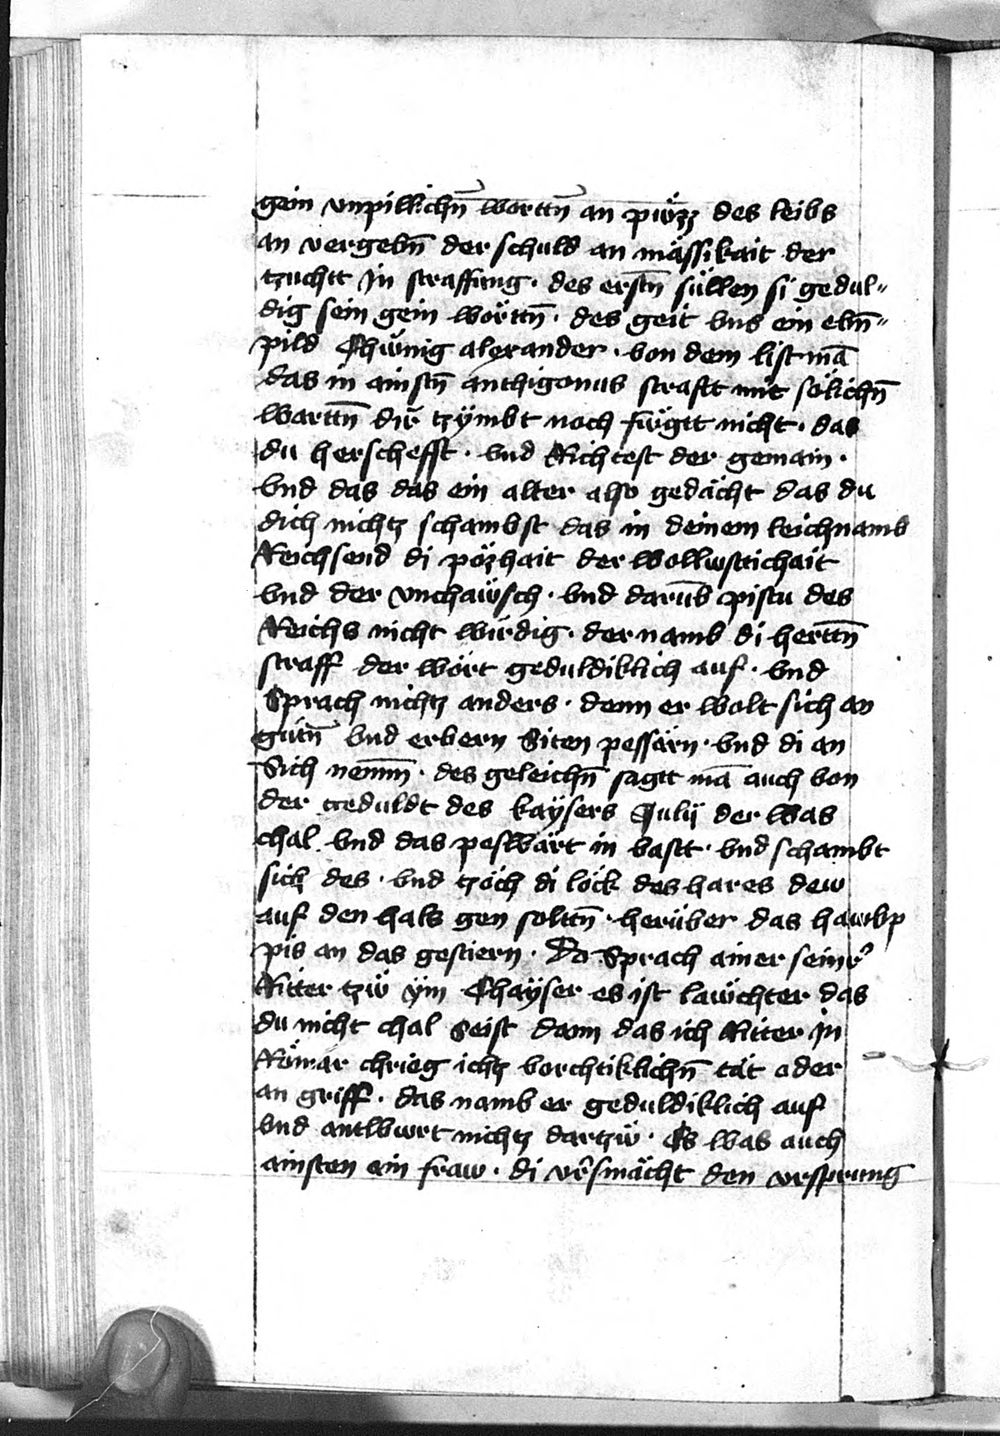 gein vnpillichn̄ worttn̄ an pu̇̈zz des leibs
an vergebn̄ der schuld an mässikait der
tzuchtt Jn straffung · des erstn̄ süllen si gedul„
dig sein gein wörttn̄ · des geit vns ein ebn̄„
pild Chünig alexander · von dem list mā
das in ainstn̄ anthigonus strafft mit sölichn̄
wort tn̄ dir tzÿmbt noch fügtt nicht · das
du herschefft · vnd Richtest der gemain ·
vnd das das ein alter also gedächt das du
dich nichtz schambst das in deinem leichnamb
Reichsend di pözhait der wollustichait
vnd der vnchaẅsch · vnd darūb pistu des
Reichs nicht wirdig · der namb di herttn̄
straff der wört geduldiklich auf · vnd
Sprach nichtz anders · denn er wolt sich an
gutn̄ vnd erbern Siten pessärn · vnd di an
Sich nemn̄ · des geleichn̄ sagtt mā auch von
der geduldt des kaÿsers Julÿ der was
chal · vnd das peswärt in vastt · vnd schambt
sich des · vnd tzöch di löck des hares dew
auf den hals gen solttn̄ · herüber das hawbp
pis an das gestiern · Do Sprach ainer seinr̄
Ritter tzẅ ÿm Chaÿser es ist lawchter das
du nicht chal Seist dann das ich Ritter Jn
Römär chrieg ichtz vorchtiklichn̄ tät oder
an griff · das namb er geduldiklich auf
vnd antwurt nichtz dartzẅ · Es was auch
ainsten ein fraw · di vr̄smächt den vrsprung